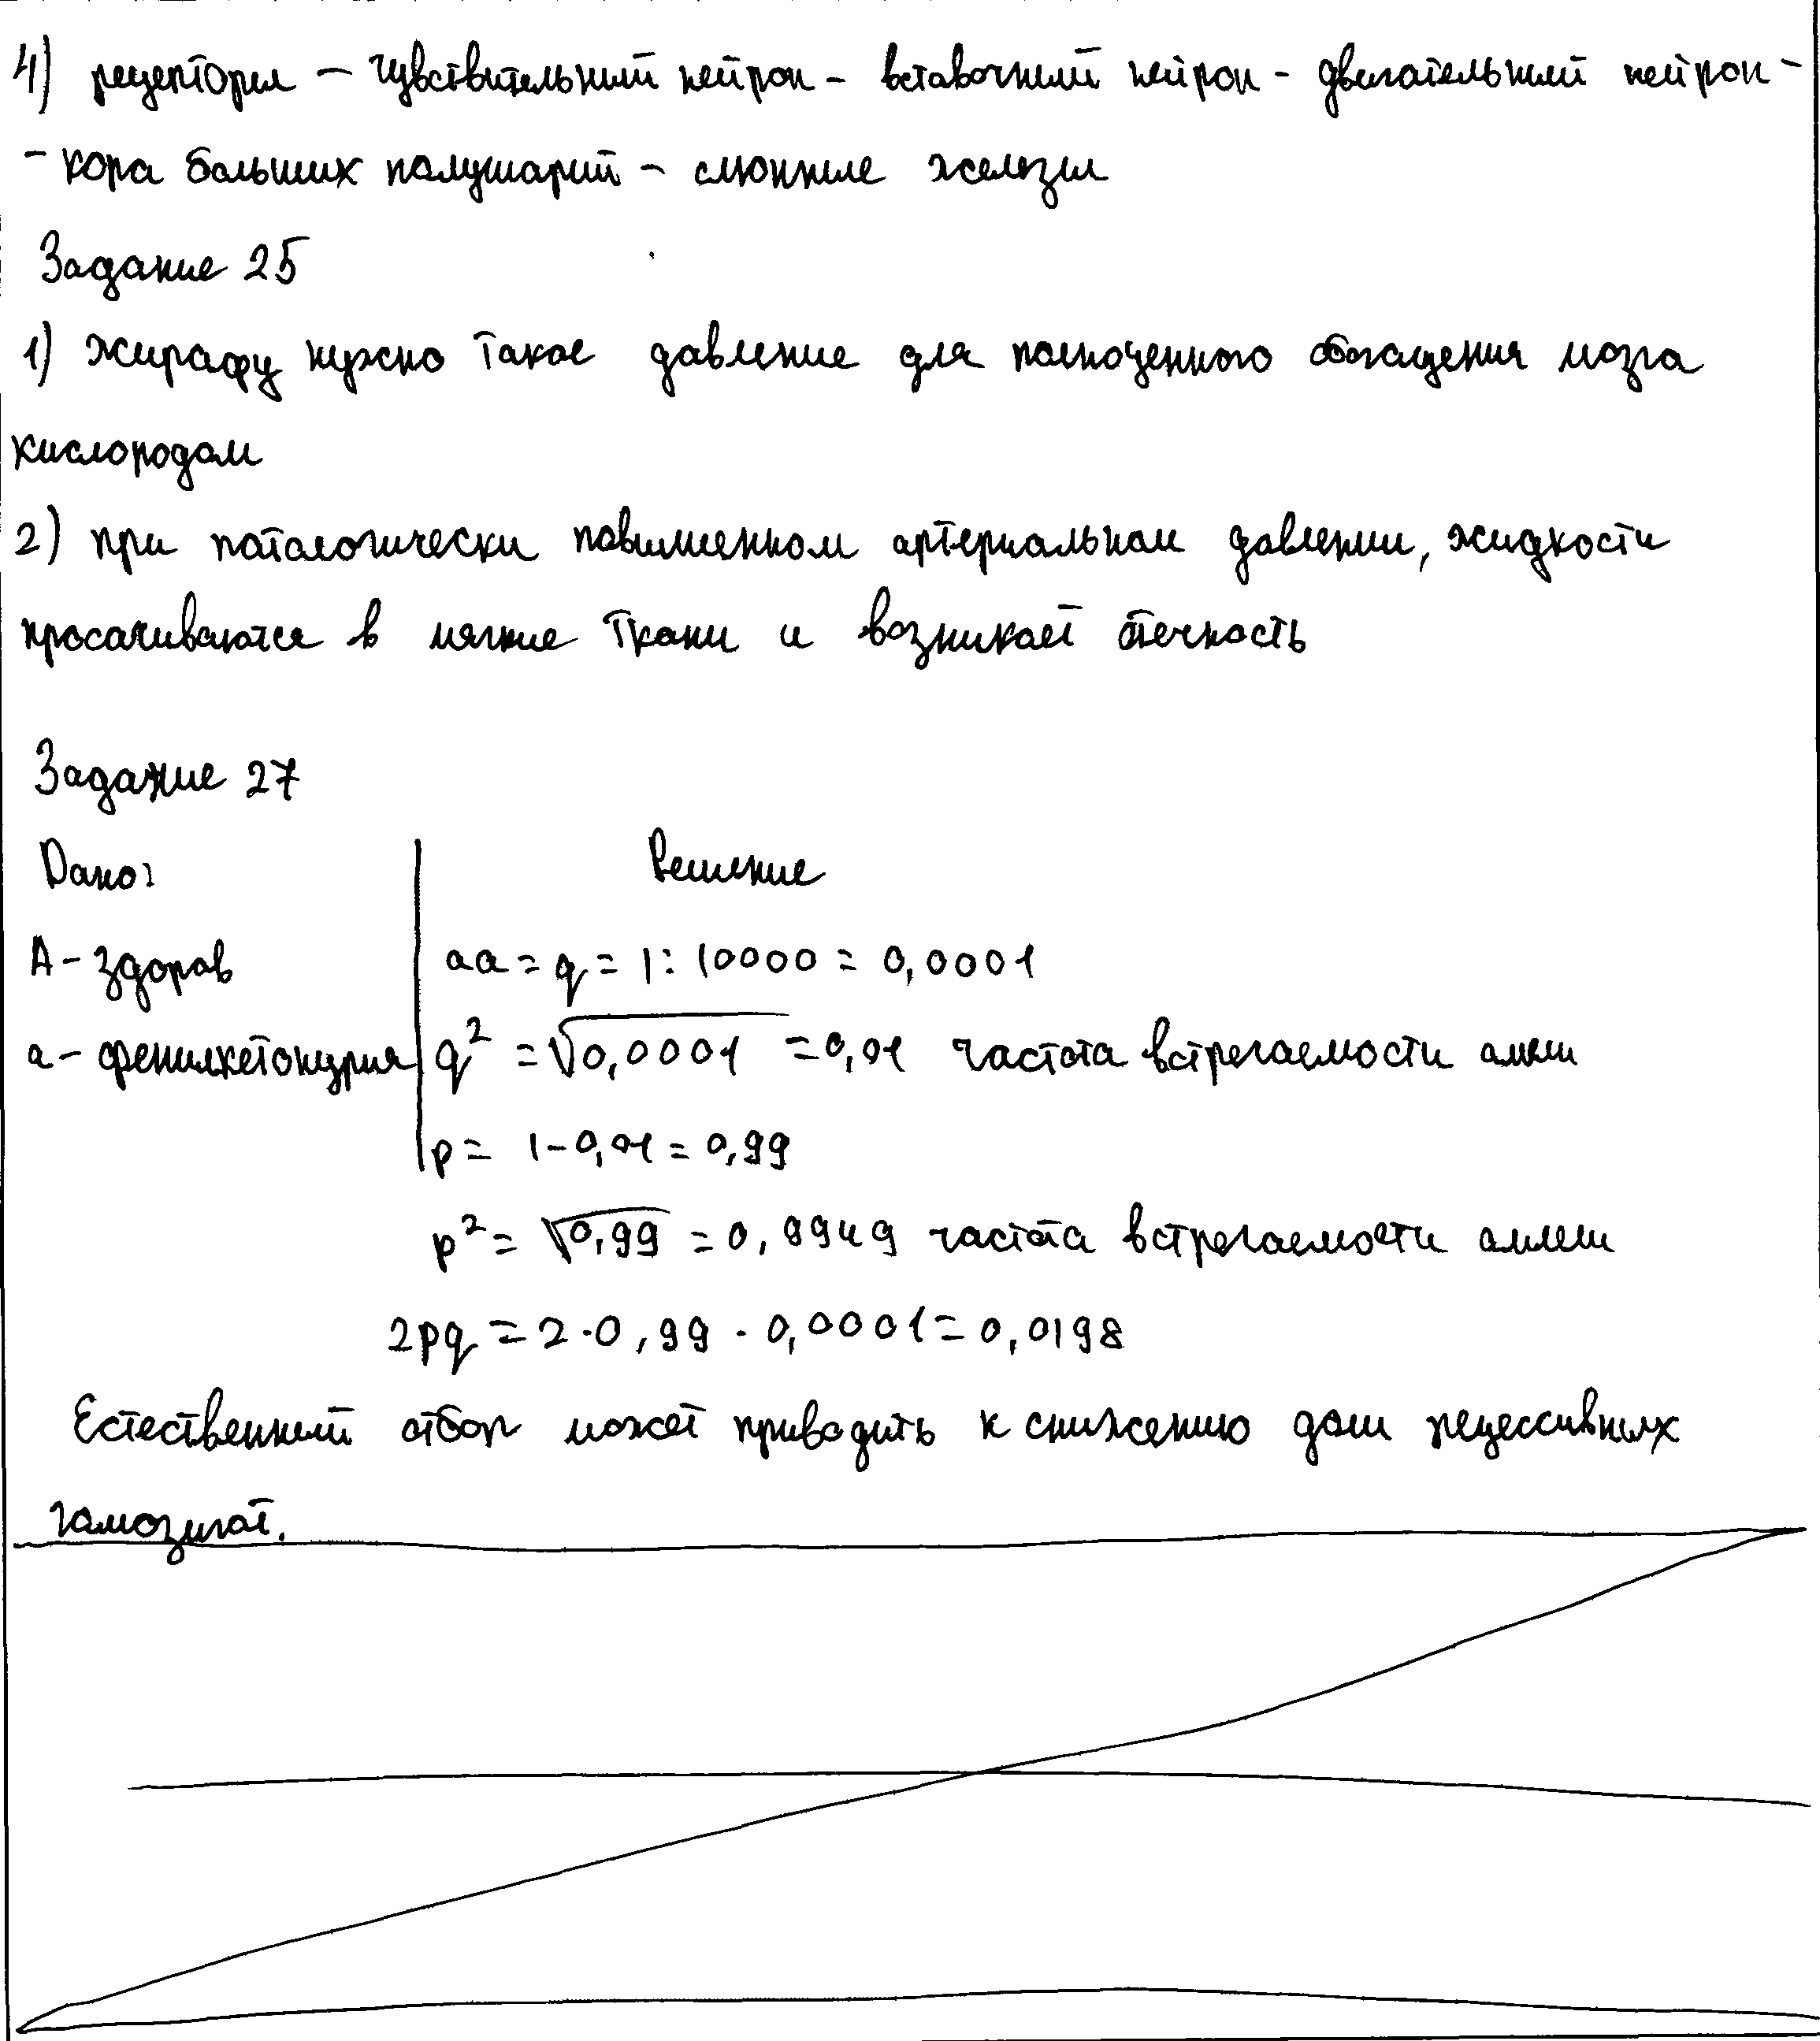 4) рецепторы – чувствительный нейрон – вставочный нейрон – двигательный нейрон –
– кора больших полушарий – слюнные железы
Задание 25
1) жирафу нужно такое давление для полноценного обогащения мозга
кислородом
2) при патологически повышенном артериальном давлении, жидкости
просачиваются в мягкие ткани и возникает отечность
Задание 27
Дано:
Решение
А – здоров
аа = q = 1 : 10000 = 0,0001
а – фенилкетонурия
q² = √0,0001 = 0,01 частота встречаемости аллели
p = 1 – 0,01 = 0,99
p² = √0,99 = 0,9949 частота встречаемости аллели
2pq = 2 · 0,99 · 0,0001 = 0,0198
Естественный отбор может приводить к снижению доли рецессивных
гамозигот.